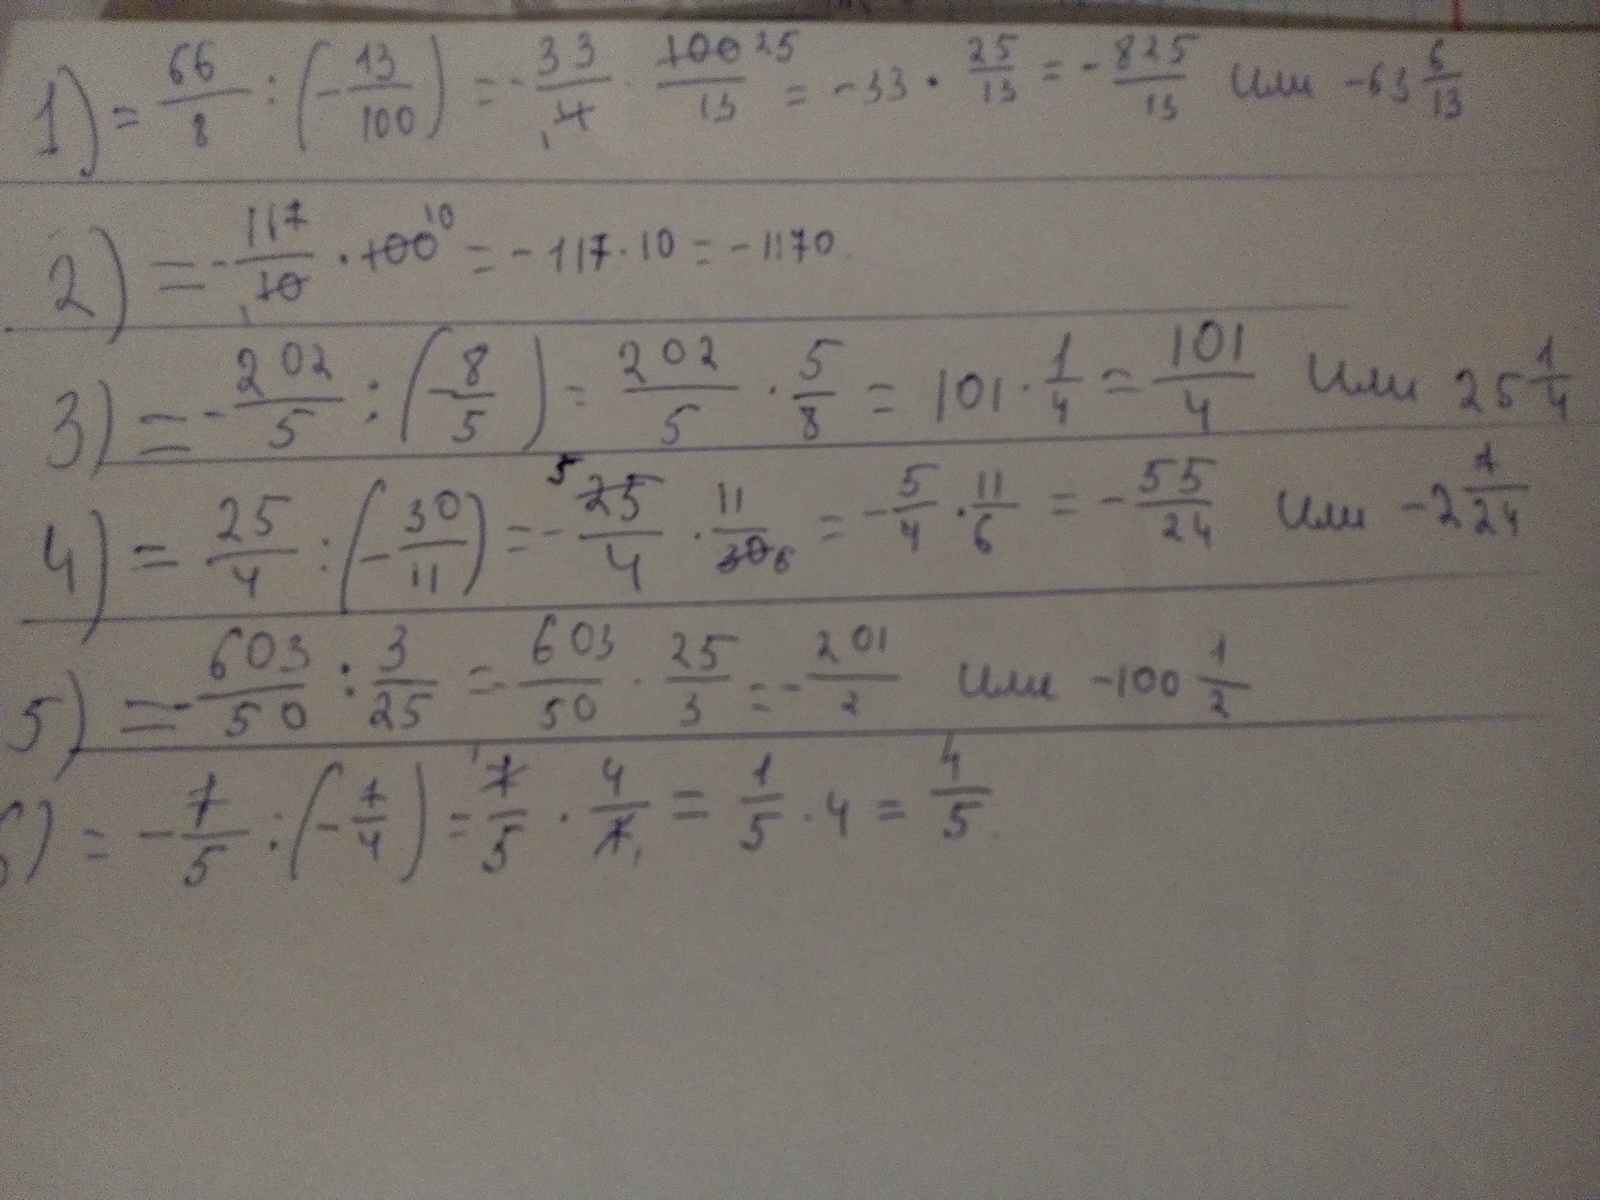 1) = 66/8 : (-13/100) = -33/4 · 100 25/13 = -33 · 25/13 = -825/13 или -63 6/13
2) = -117/10 · 100 10 = -117 · 10 = -1170.
3) = -202/5 : (-8/5) = 202/5 · 5/8 = 101 · 1/4 = 101/4 или 25 1/4
4) = 25/4 : (-30/11) = - 5 25/4 · 11/30 6 = -5/4 · 11/6 = -55/24 или -2 7/24
5) = -603/50 : 3/25 = -603/50 · 25/3 = -201/2 или -100 1/2
6) = -7/5 : (-7/4) = 1 7/5 · 4/7 1 = 1/5 · 4 = 4/5.